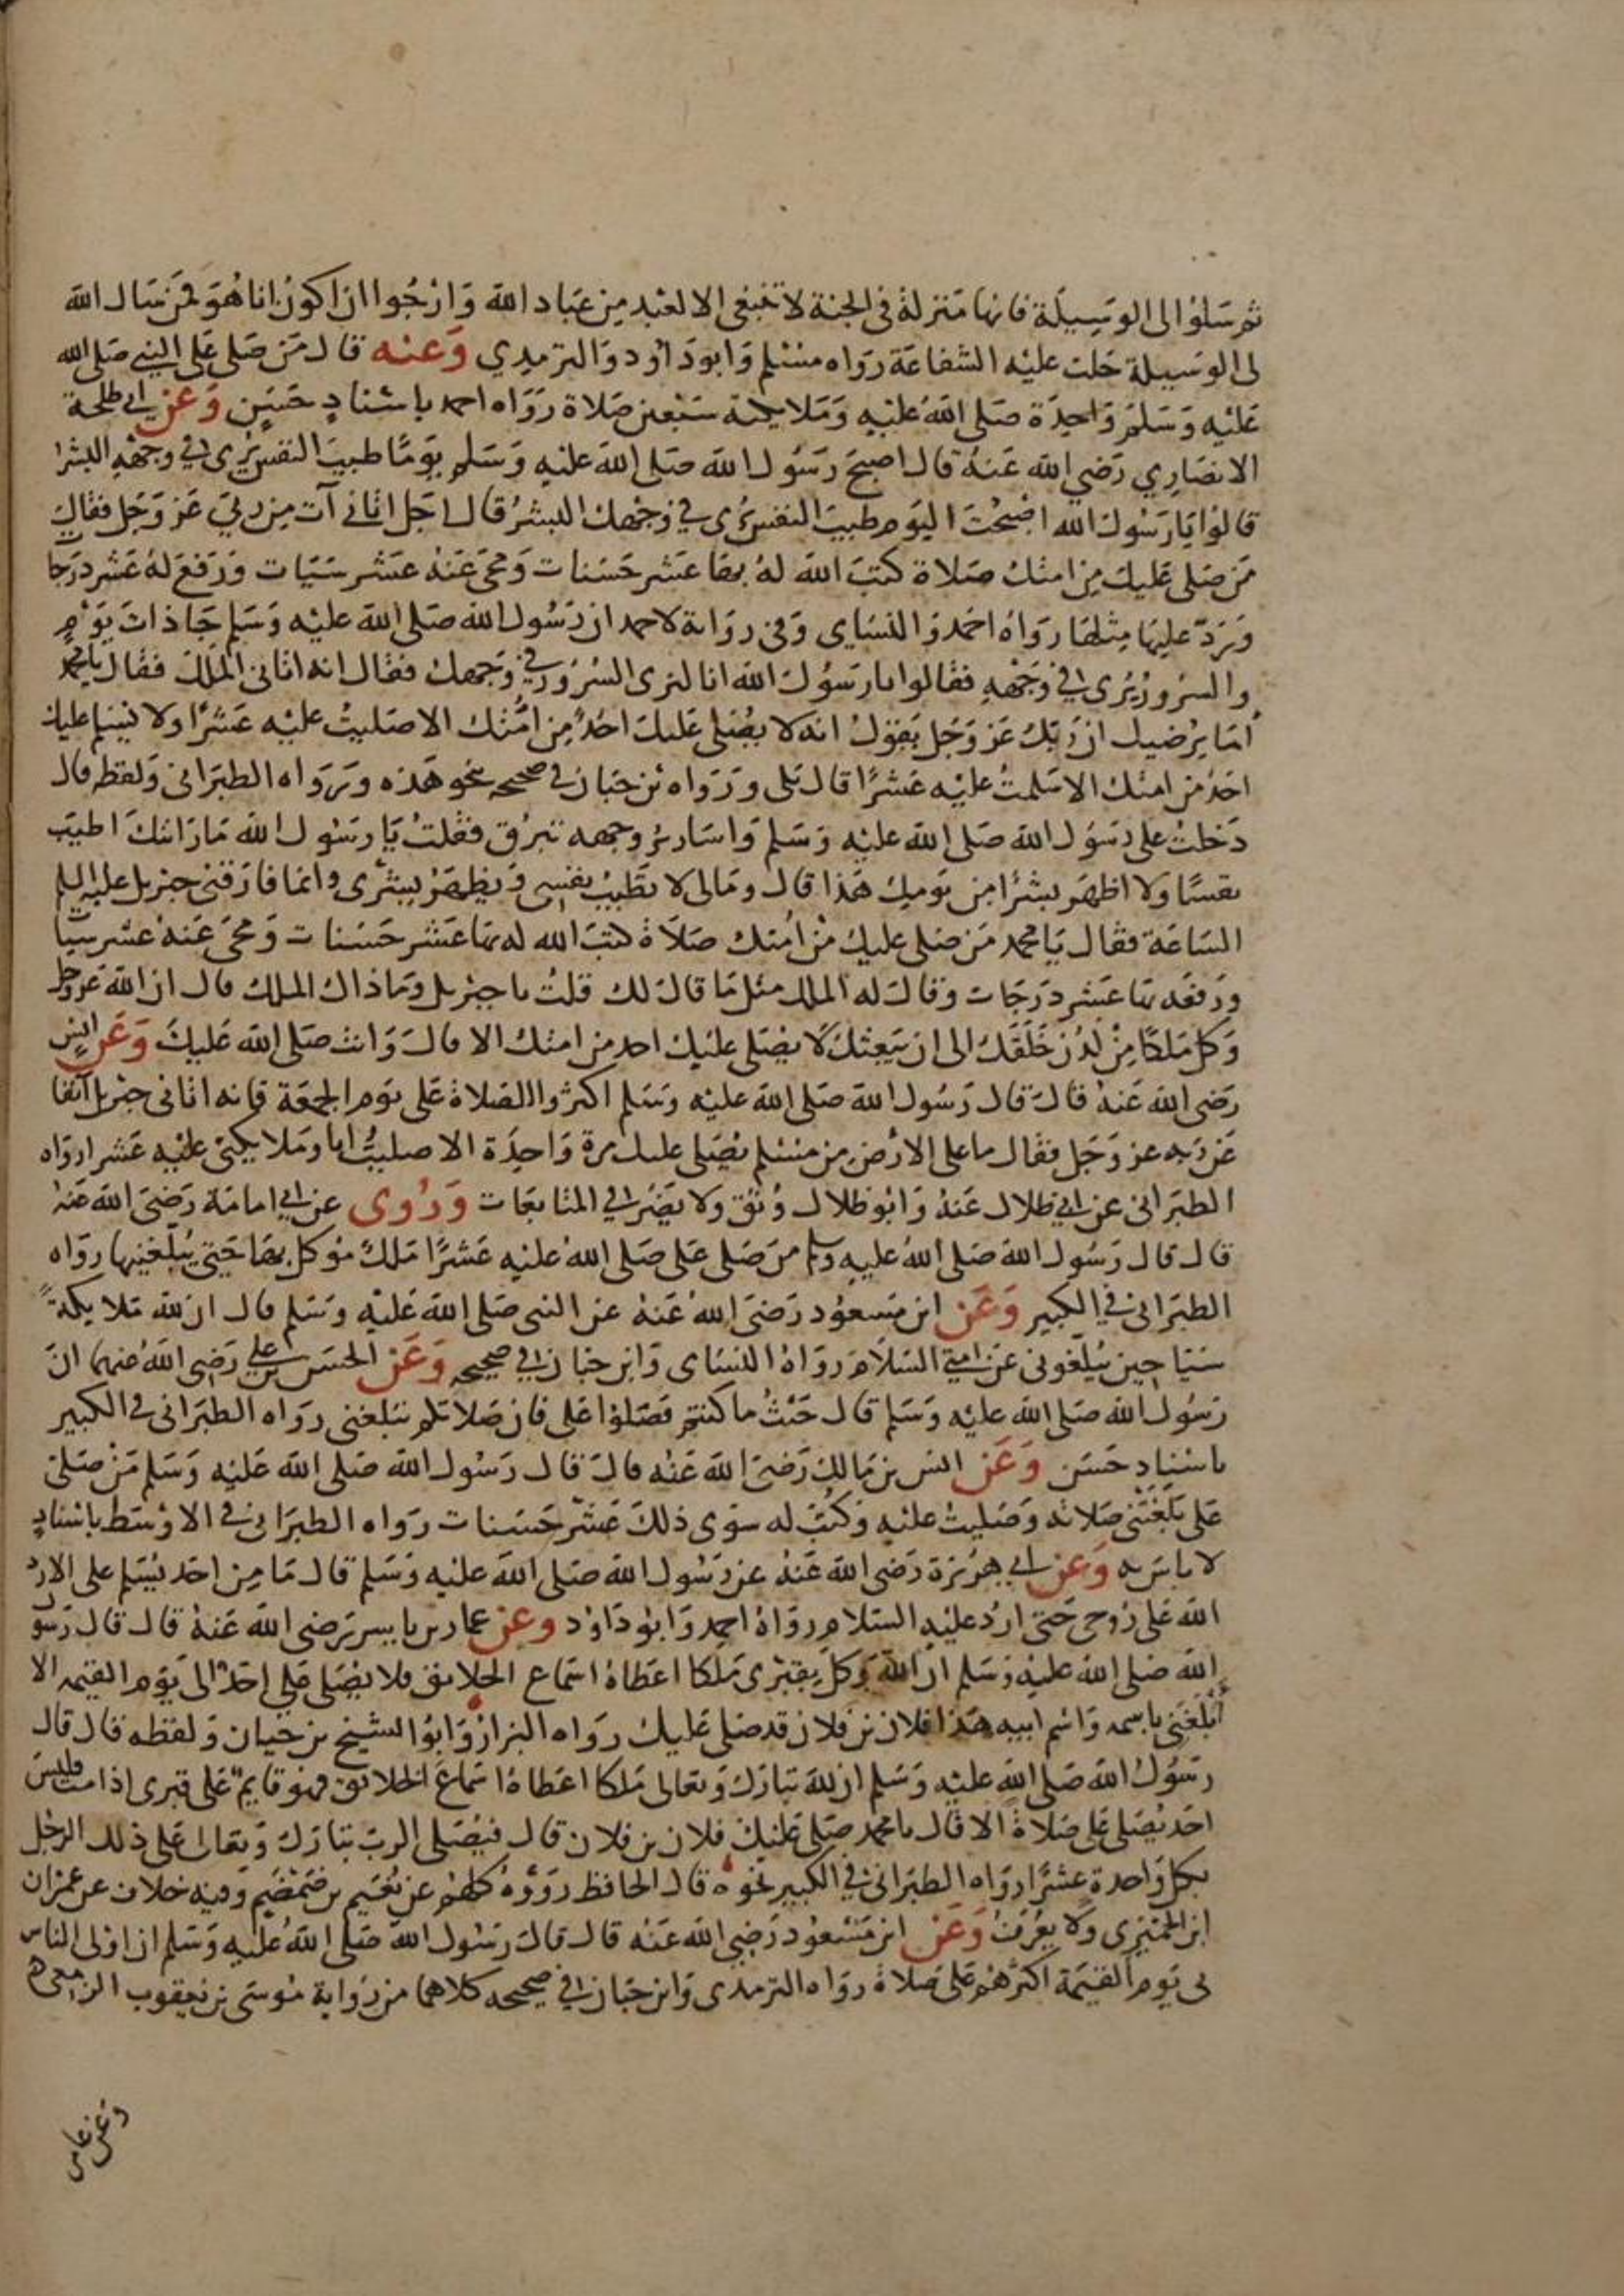 ثم سلوا الى الوسيلة فانها منزلة فى الجنة لا تنبغى الا لعبد من عباد الله وارجوا ان اكون انا هو فمن سال الله
لى الوسيلة حلت عليه الشفاعة رواه مسلم وابو داود والترمدي وعنه قال من صلى على النبي صلى الله
عليه وسلم واحدة صلى الله عليه وملايكته سبعين صلاة رواه احمد باسناد حسن وعن ابي طلحة
الانصاري رضي الله عنه قال اصبح رسول الله صلى الله عليه وسلم يوما طيب النفس يرى في وجهه البشر
قالوا يا رسول الله اصبحت اليوم طيب النفس يرى في وجهك البشر قال اجل اتاني آت من ربي عز وجل فقال
من صلى عليك من امتك صلاة كتب الله له بها عشر حسنات ومحى عنه عشر سيات ورفع له عشر درجات
ورد عليها مثلها رواه احمد والنساى وفى رواية لاحمد ان رسول الله صلى الله عليه وسلم جا ذات يوم
والسرور يرى في وجهه فقالوا يا رسول الله انا لنرى السرور في وجهك فقال انه اتانى الملك فقال يا محمد
اما يرضيك ان ربك عز وجل يقول انه لا يصلى عليك احد من امتك الا صليت عليه عشرا ولا يسلم عليك
احد من امتك الا سلمت عليه عشرا قال بلى ورواه بن حبان في صحيحه بنحو هذه ورواه الطبرانى ولفظه قال
دخلت على رسول الله صلى الله عليه وسلم واسارير وجهه تبرق فقلت يا رسول الله ما رايتك اطيب
نفسا ولا اظهر بشرا من يومك هذا قال ومالى لا تطيب نفسى ويظهر بشرى وانما فارقنى جبريل عليه السلم
الساعة فقال يا محمد من صلى عليك من امتك صلاة كتب الله له بها عشر حسنات ومحى عنه عشر سيات
ورفعه بها عشر درجات وقال له الملك مثل ما قال لك قلت يا جبريل وما ذاك الملك قال ان الله عز وجل
وكل ملكا من لدن خلقك الى ان يبعثك لا يصلى عليك احد من امتك الا قال وانت صلى الله عليك وعن انس
رضى الله عنه قال قال رسول الله صلى الله عليه وسلم اكثروا الصلاة على يوم الجمعة فانه اتانى جبريل آنفا
عن ربه عز وجل فقال ما على الارض من مسلم يصلى عليك مرة واحدة الا صليت انا وملايكتى عليه عشرا رواه
الطبرانى عن ابي ظلال عنه وابو ظلال وثق ولا يضر في المتابعات وروى عن ابي امامة رضى الله عنه
قال قال رسول الله صلى الله عليه وسلم من صلى على صلى الله عليه عشرا ملك موكل بها حتى يبلغنيها رواه
الطبرانى في الكبير وعن ابن مسعود رضى الله عنه عن النبى صلى الله عليه وسلم قال ان لله ملايكة
سياحين يبلغونى عن امتي السلام رواه النساى وابن حبان في صحيحه وعن الحسن بن علي رضى الله عنهما ان
رسول الله صلى الله عليه وسلم قال حيث ما كنتم فصلوا على فان صلاتكم تبلغنى رواه الطبرانى في الكبير
باسناد حسن وعن انس بن مالك رضى الله عنه قال قال رسول الله صلى الله عليه وسلم من صلى
على بلغتنى صلاته وصليت عليه وكتب له سوى ذلك عشر حسنات رواه الطبرانى في الاوسط باسناد
لا باس به وعن ابي هريرة رضى الله عنه عن رسول الله صلى الله عليه وسلم قال ما من احد يسلم على الا رد
الله على روحى حتى ارد عليه السلام رواه احمد وابو داود وعن عمار بن ياسر رضى الله عنه قال قال رسول
الله صلى الله عليه وسلم ان الله وكل بقبرى ملكا اعطاه اسماع الخلايق فلا يصلى على احد الى يوم القيمه الا
ابلغنى باسمه واسم ابيه هذا فلان بن فلان قد صلى عليك رواه البزار وابو الشيخ بن حيان ولفظه قال قال
رسول الله صلى الله عليه وسلم ان لله تبارك وتعالى ملكا اعطاه اسماع الخلايق فهو قايم على قبرى اذا مت فليس
احد يصلى على صلاة الا قال يا محمد صلى عليك فلان بن فلان قال فيصلى الرب تبارك وتعالى على ذلك الرجل
بكل واحدة عشرا رواه الطبرانى في الكبير نحوه قال الحافظ رووه كلهم عن نعيم بن ضمضم وفيه خلاف عن عمران
ابن الحميرى ولا يعرف وعن ابن مسعود رضى الله عنه قال قال رسول الله صلى الله عليه وسلم ان اولى الناس
بى يوم القيمة اكثرهم على صلاة رواه الترمدى وابن حبان في صحيحه كلاهما من رواية موسى بن يعقوب الزمعى
وعن عامر